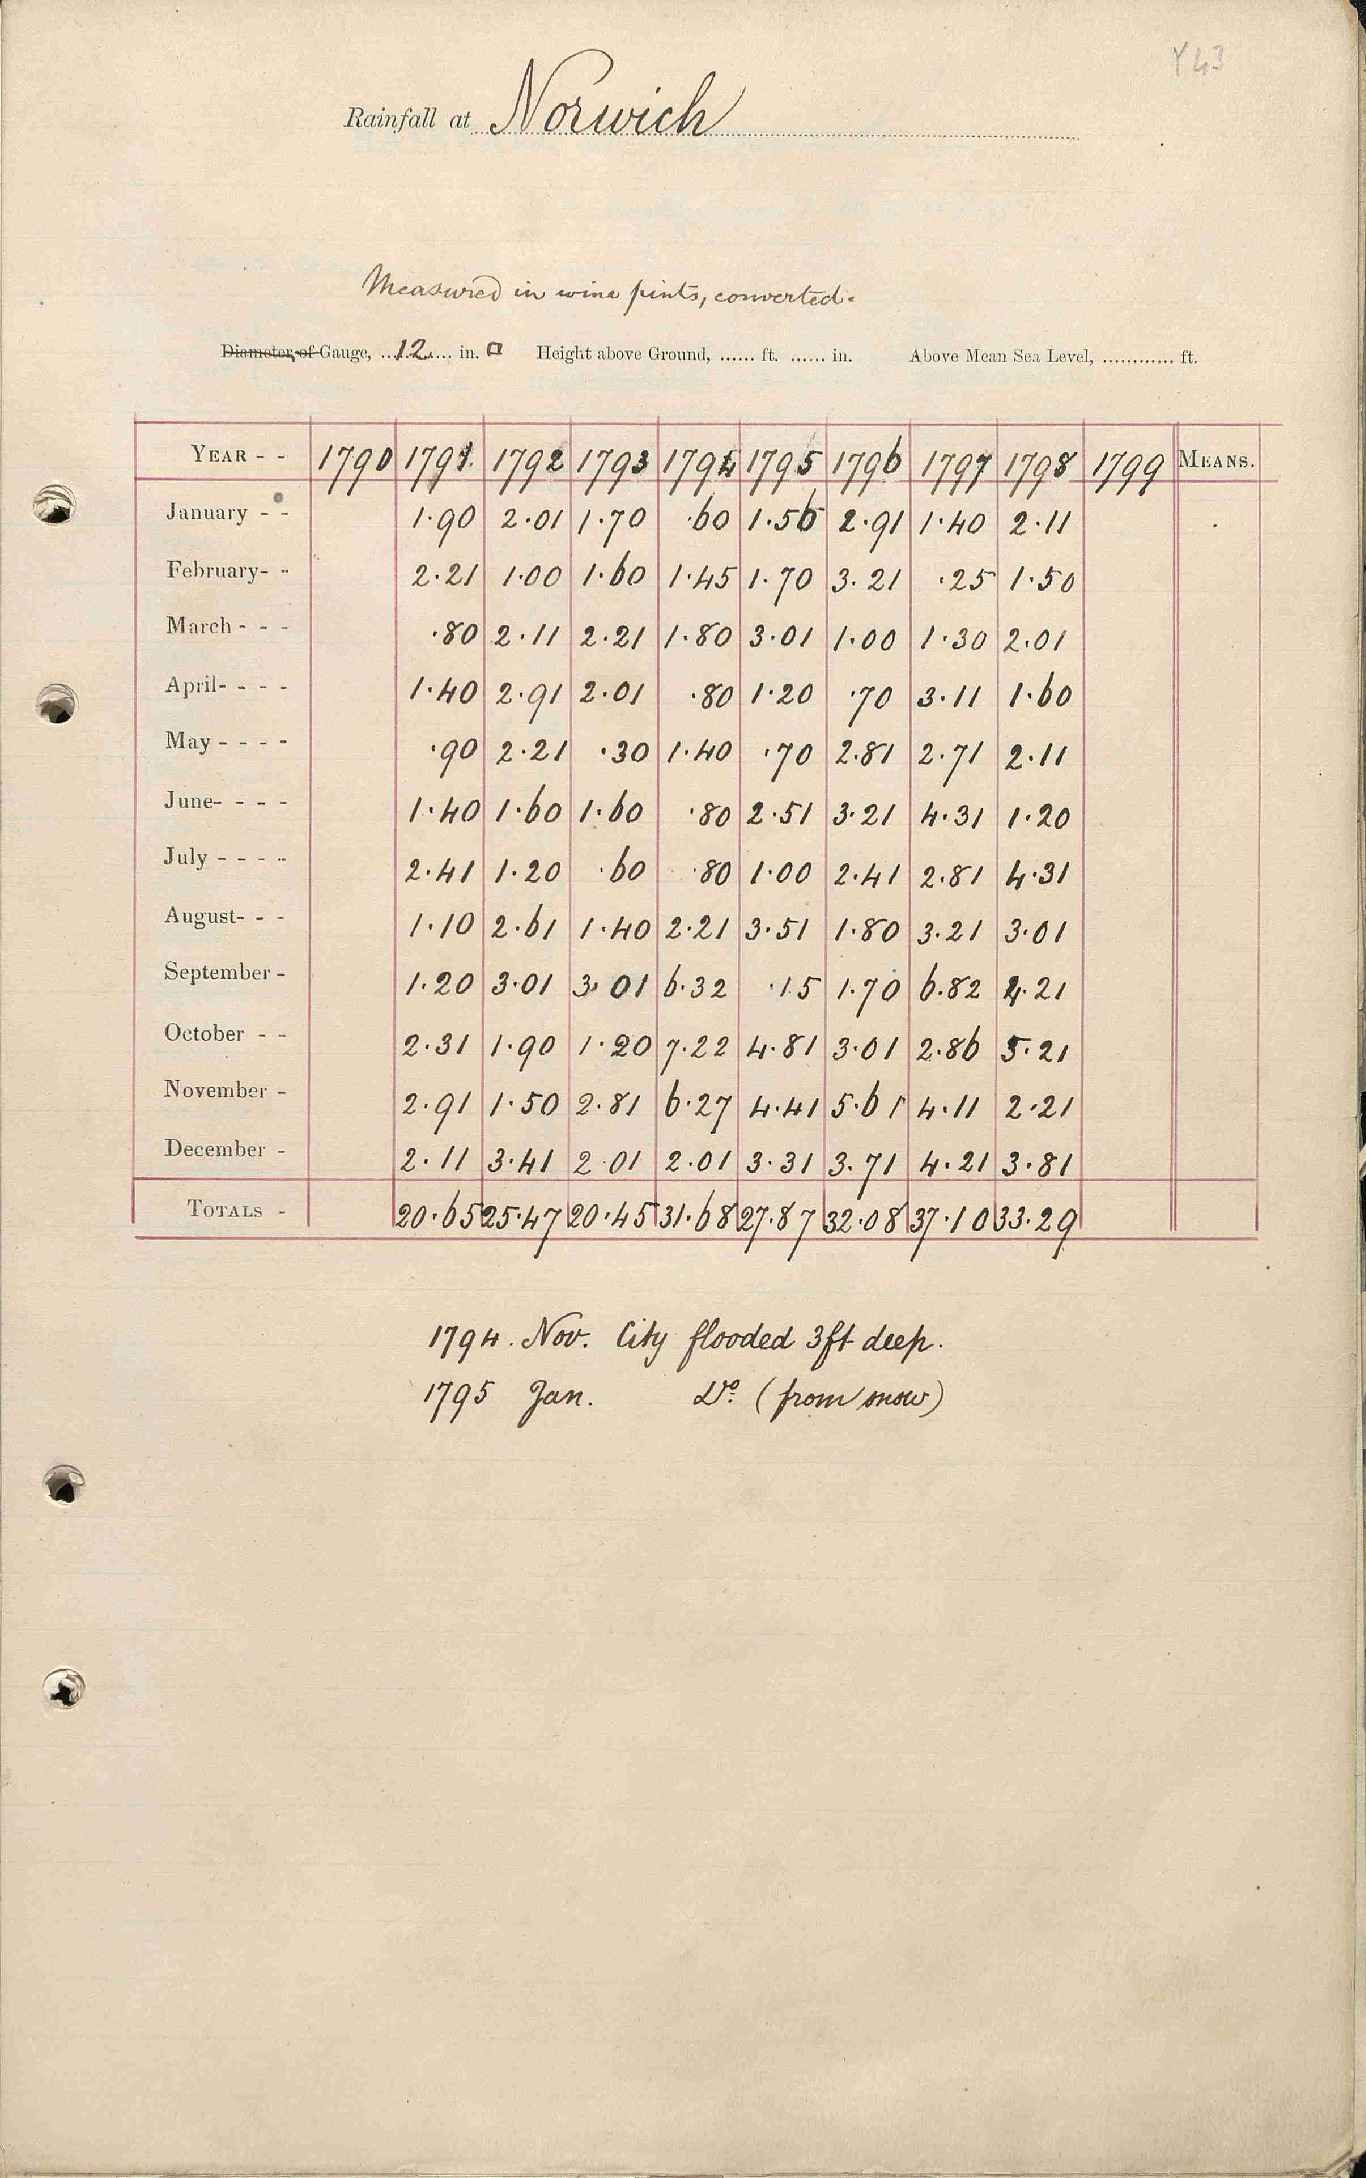 Y43
Rainfall at Norwich
Measured in wine pints, converted.
Diameter of Gauge, 12 in. □ Height above Ground, ...... ft. ...... in. Above Mean Sea Level, ............ ft.
YEAR - - 1790 1791 1792 1793 1794 1795 1796 1797 1798 1799 MEANS.
January - - 1.90 2.01 1.70 .60 1.56 2.91 1.40 2.11
February - - 2.21 1.00 1.60 1.45 1.70 3.21 .25 1.50
March - - - .80 2.11 2.21 1.80 3.01 1.00 1.30 2.01
April - - - - 1.40 2.91 2.01 .80 1.20 .70 3.11 1.60
May - - - - .90 2.21 .30 1.40 .70 2.81 2.71 2.11
June - - - - 1.40 1.60 1.60 .80 2.51 3.21 4.31 1.20
July - - - - 2.41 1.20 .60 .80 1.00 2.41 2.81 4.31
August - - - 1.10 2.61 1.40 2.21 3.51 1.80 3.21 3.01
September - 1.20 3.01 3.01 6.32 .15 1.70 6.82 4.21
October - - 2.31 1.90 1.20 7.22 4.81 3.01 2.86 5.21
November - 2.91 1.50 2.81 6.27 4.41 5.61 4.11 2.21
December - 2.11 3.41 2.01 2.01 3.31 3.71 4.21 3.81
TOTALS - 20.65 25.47 20.45 31.68 27.87 32.08 37.10 33.29
1794. Nov. City flooded 3ft deep.
1795 Jan. Do. (from snow)